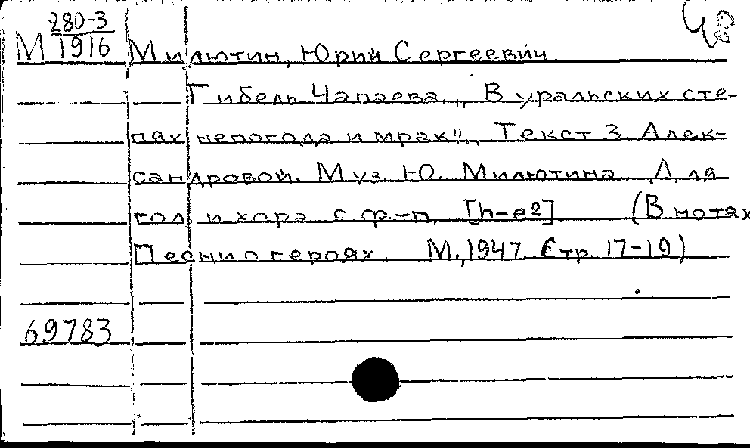 М 280-3
1916
Милютин, Юрий Сергеевич
Гибель Чапаева. „В уральских сте-
пях непогода и мрак". Текст З. Алек-
сандровой. Муз. Ю. Милютина. Для
гол. и хора с ф-п. [h-e2] (В нотах
Песни о героях. М., 1947. Стр. 17-19)
69783